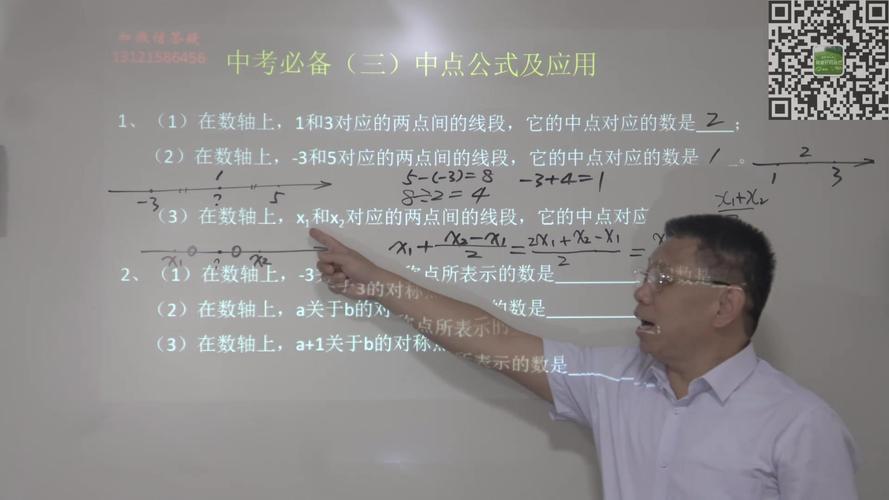 加微信答疑
13121586456
中考必备（三）中点公式及应用
1、（1）在数轴上，1和3对应的两点间的线段，它的中点对应的数是 2 ；
（2）在数轴上，-3和5对应的两点间的线段，它的中点对应的数是 1 。
2
1 3
1
-3 ? 5
5-(-3)=8
8÷2=4
-3+4=1
（3）在数轴上，x₁和x₂对应的两点间的线段，它的中点对应
x₁+x₂
x₁ ? x₂
x₁+(x₂-x₁)/2=(2x₁+x₂-x₁)/2=
2、（1）在数轴上，-3关于3的对称点所表示的数是
（2）在数轴上，a关于b的对称点所表示的数是
（3）在数轴上，a+1关于b的对称点所表示的数是